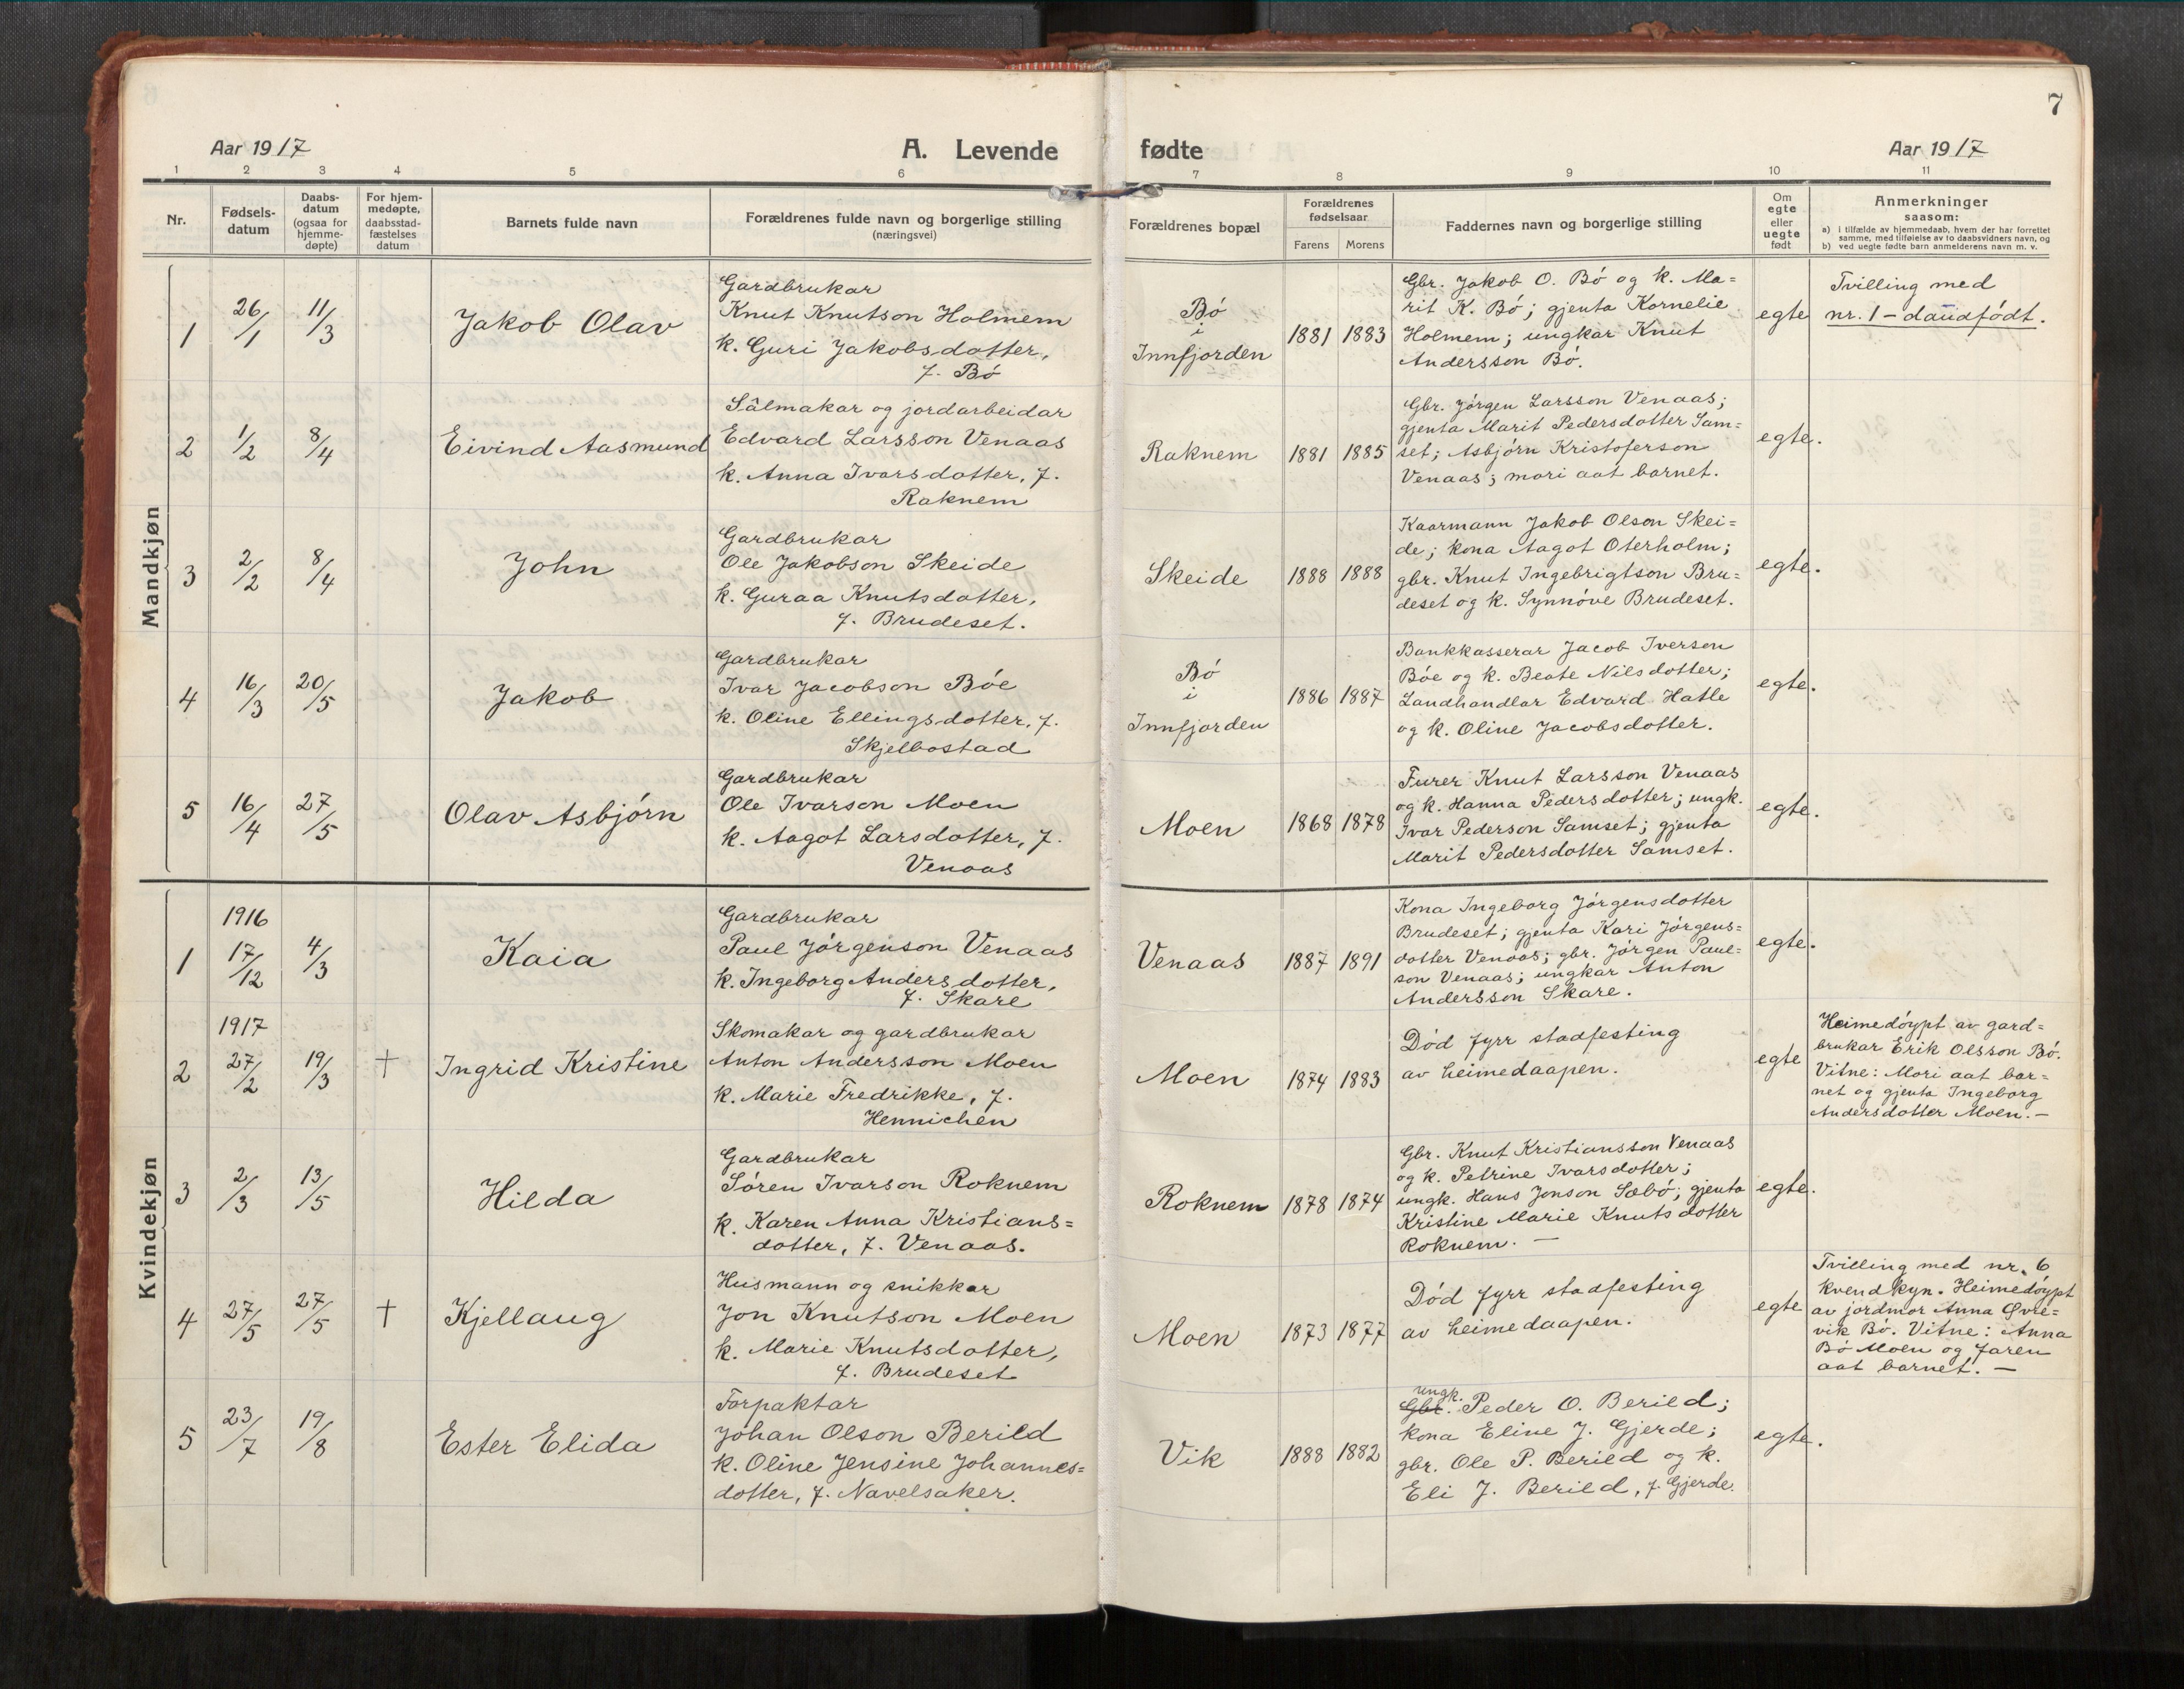 7
Aar 1917
A. Levende
fødte
Aar 1917
1 2 3 4 5 6 7 8 9 10 11
Nr.
Fødsels-
datum
Daabs-
datum
(ogsaa for
hjemme-
døpte)
For hjem-
medøpte,
daabsstad-
fæstelses
datum
Barnets fulde navn
Forældrenes fulde navn og borgerlige stilling
(næringsvei)
Forældrenes bopæl
Forældrenes
fødselsaar
Farens Morens
Faddernes navn og borgerlige stilling
Om
egte
eller
uegte
født
Anmerkninger
saasom:
a) i tilfælde av hjemmedaab, hvem der har forrettet
samme, med tilføielse av to daabsvidners navn, og
b) ved uegte fødte barn anmelderens navn m. v.
Mandkjøn
1
26/1
11/3
Jakob Olav
Gardbrukar
Knut Knutson Holmem
k. Guri Jakobsdotter,
f. Bó
Bó
i
Innfjorden
1881 1883
Gbr. Jakob O. Bó og k. Ma=
rit K. Bó; gjenta Kornelie
Holmem; ungkar Knut
Andersson Bó.
egte
Tvilling med
nr. 1 - daudfódt.
2
1/2
8/4
Eivind Aasmund
Sålmakar og jordarbeidar
Edvard Larsson Venaas
k. Anna Ivarsdotter, f.
Raknem
Raknem
1881 1885
Gbr. Jórgen Larsson Venaas;
gjenta Marit Pedersdotter Sam=
set; Asbjórn Kristoferson
Venaas; mori aat barnet.
egte.
3
2/2
8/4
John
Gardbrukar
Ole Jakobson Skeide
k. Guraa Knutsdotter,
f. Brudeset.
Skeide
1888 1888
Kaarmann Jakob Olson Skei=
de; kona Aagot Oterholm;
gbr. Knut Ingebrigtson Bru=
deset og k. Synnóve Brudeset.
egte.
4
16/3
20/5
Jakob
Gardbrukar
Ivar Jacobson Bóe
k. Oline Ellingsdotter, f.
Skjelbostad
Bó
i
Innfjorden
1886 1887
Bankkasserar Jacob Iverson
Bóe og k. Beate Nilsdotter;
Landhandlar Edvard Hatle
og k. Oline Jacobsdotter.
egte.
5
16/4
27/5
Olav Asbjórn
Gardbrukar
Ole Ivarson Moen
k. Aagot Larsdotter, f.
Venaas
Moen
1868 1878
Furer Knut Larsson Venaas
og k. Hanna Pedersdotter; ungk.
Ivar Pederson Samset; gjenta
Marit Pedersdotter Samset.
egte.
Kvindekjøn
1
1916
17/12
4/3
Kaia
Gardbrukar
Paul Jórgenson Venaas
k. Ingeborg Andersdotter,
f. Skare
Venaas
1887 1891
Kona Ingeborg Jórgensdotter
Brudeset; gjenta Kari Jórgens=
dotter Venaas; gbr. Jórgen Paul=
son Venaas; ungkar Anton
Andersson Skare.
egte.
2
1917
27/2
19/3
†
Ingrid Kristine
Skomakar og gardbrukar
Anton Andersson Moen
k. Marie Fredrikke, f.
Hennichen
Moen
1874 1883
Dód fyrr stadfesting
av heimedaapen.
egte
Heimedóypt av gard=
brukar Erik Olsson Bó.
Vitne: Mori aat bar=
net og gjenta Ingeborg
Andersdotter Moen. —
3
2/3
13/5
Hilda
Gardbrukar
Sóren Ivarson Roknem
k. Karen Anna Kristians=
dotter, f. Venaas.
Roknem
1878 1874
Gbr. Knut Kristiansson Venaas
og k. Petrine Ivarsdotter;
ungk. Hans Jonson Sæbó; gjenta
Kristine Marie Knutsdotter
Roknem. —
egte.
4
27/5
27/5
†
Kjellaug
Husmann og snikkar
Jon Knutson Moen
k. Marie Knutsdotter,
f. Brudeset
Moen
1873 1877
Dód fyrr stadfesting
av heimedaapen.
egte
Tvilling med nr. 6
kvendkyn. Heimedóypt
av jordmor Anna Øvre=
vik Bó. Vitne: Anna
Bó Moen og faren
aat barnet. —
5
23/7
19/8
Ester Elida
Forpaktar
Johan Olson Berild
k. Oline Jensine Johannes=
dotter, f. Navelsaker.
Vik
1888 1882
ungk.
Gbr. Peder O. Berild;
kona Eline J. Gjerde;
gbr. Ole P. Berild og k.
Eli J. Berild, f. Gjerde.
egte.